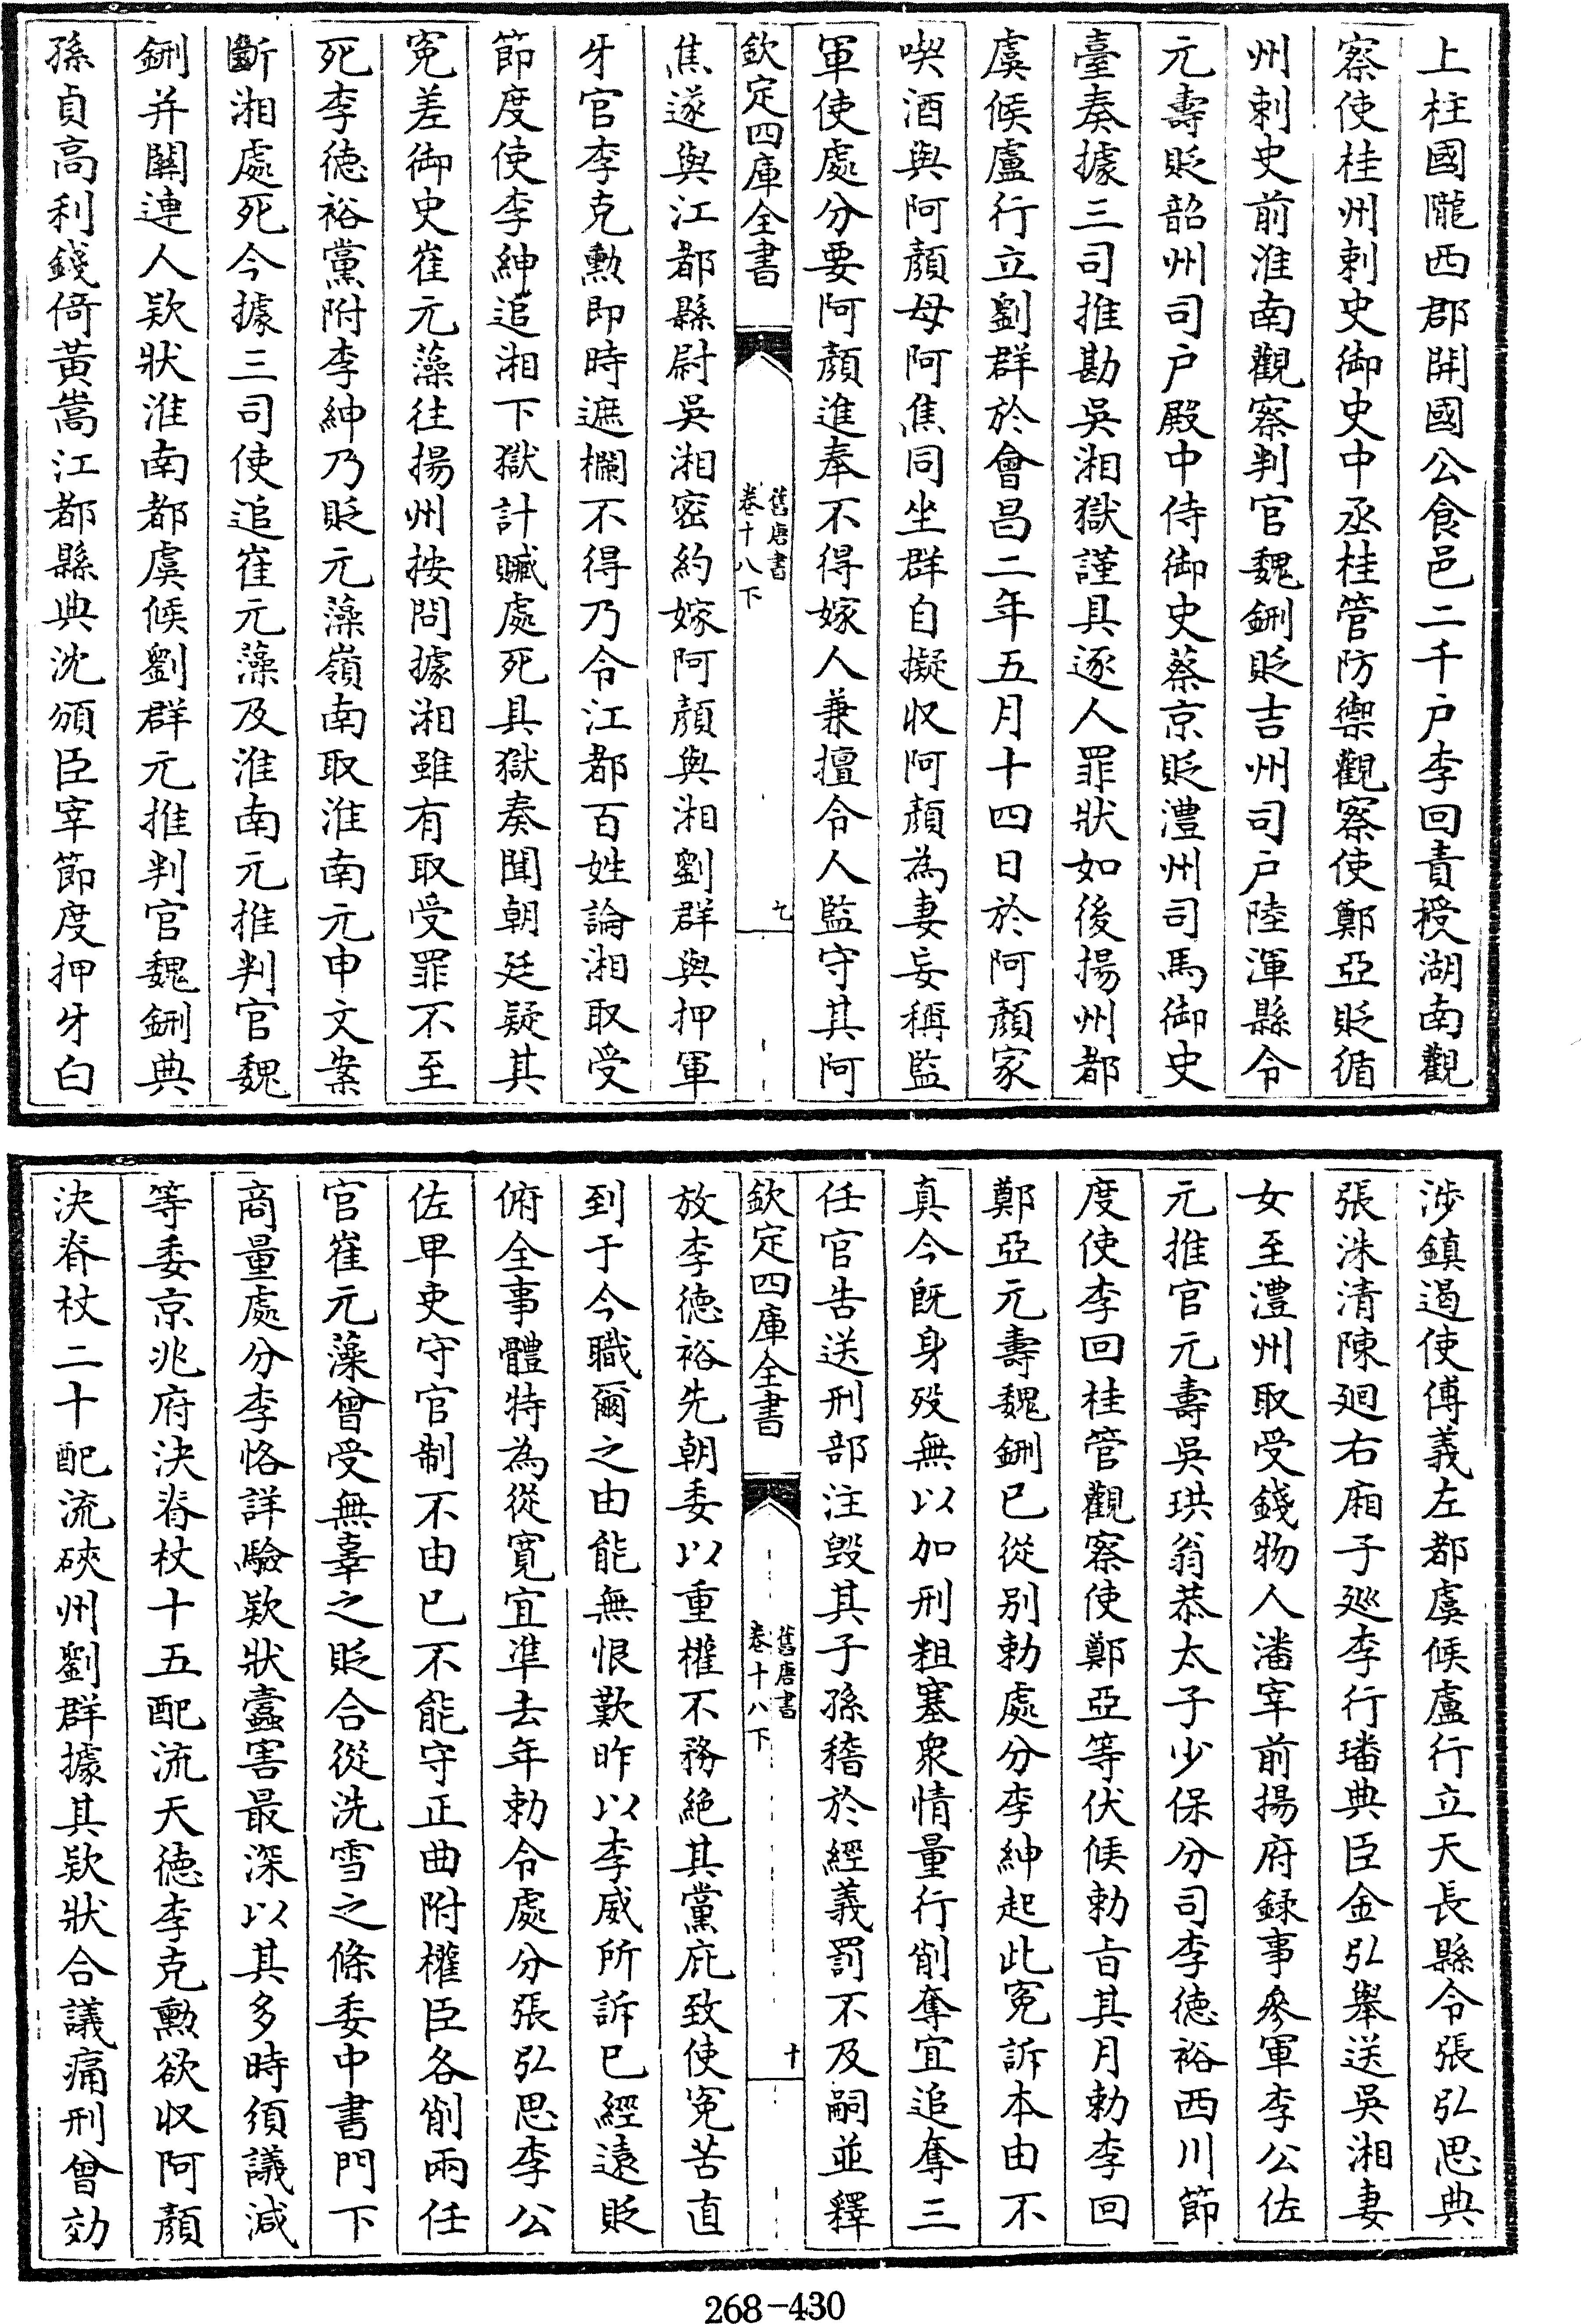 上柱國隴西郡開國公食邑二千户李回責授湖南觀
察使桂州刺史御史中丞桂管防禦觀察使鄭亞貶循
州刺史前淮南觀察判官魏鉶貶吉州司户陸渾縣令
元壽貶韶州司户殿中侍御史蔡京貶澧州司馬御史
臺奏據三司推勘吳湘獄謹具逐人罪狀如後揚州都
虞候盧行立劉群於會昌二年五月十四日於阿顔家
喫酒與阿顔母阿焦同坐群自擬收阿顔為妻妄稱監
軍使處分要阿顔進奉不得嫁人兼擅令人監守其阿
欽定四庫全書
舊唐書
卷十八下
九
焦遂與江都縣尉吳湘密約嫁阿顔與湘劉群與押軍
牙官李克勲即時遮欄不得乃令江都百姓論湘取受
節度使李紳追湘下獄計贓處死具獄奏聞朝廷疑其
寃差御史崔元藻往揚州按問據湘雖有取受罪不至
死李德裕黨附李紳乃貶元藻嶺南取淮南元申文案
斷湘處死今據三司使追崔元藻及淮南元推判官魏
鉶并關連人欵狀淮南都虞候劉群元推判官魏鉶典
孫貞高利錢倚黄嵩江都縣典沈頒臣宰節度押牙白
涉鎮遏使傅義左都虞候盧行立天長縣令張弘思典
張洙清陳迴右廂子廵李行璠典臣金弘舉送吳湘妻
女至澧州取受錢物人潘宰前揚府録事參軍李公佐
元推官元壽吳珙翁恭太子少保分司李德裕西川節
度使李回桂管觀察使鄭亞等伏候勅旨其月勅李回
鄭亞元壽魏鉶已從别勅處分李紳起此寃訴本由不
真今既身殁無以加刑粗塞衆情量行削奪宜追奪三
任官告送刑部注毁其子孫稽於經義罰不及嗣並釋
欽定四庫全書
舊唐書
卷十八下
十
放李德裕先朝委以重權不務絶其黨庇致使寃苦直
到于今職爾之由能無恨歎昨以李威所訴已經逺貶
俯全事體特為從寛宜準去年勅令處分張弘思李公
佐卑吏守官制不由已不能守正曲附權臣各削兩任
官崔元藻曾受無辜之貶合從洗雪之條委中書門下
商量處分李恪詳驗欵狀蠧害最深以其多時須議減
等委京兆府決脊杖十五配流天德李克勲欲收阿顔
決脊杖二十配流硤州劉群據其欵狀合議痛刑曾効
268-430